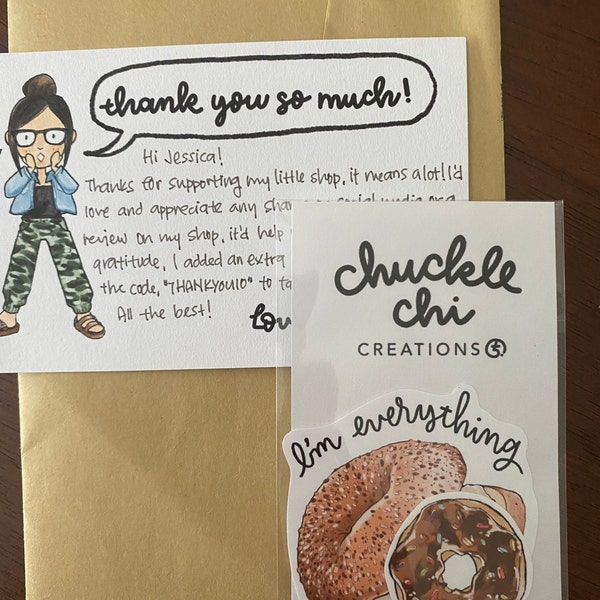 thank you so much!
Hi Jessica!
Thanks for supporting my little shop, it means alot! I'd
love and appreciate any
review on my shop, it'd help
gratitude, I added an extra
the code, "THANKYOU10" to
All the best!
chuckle
chi
CREATIONS
I'm everything